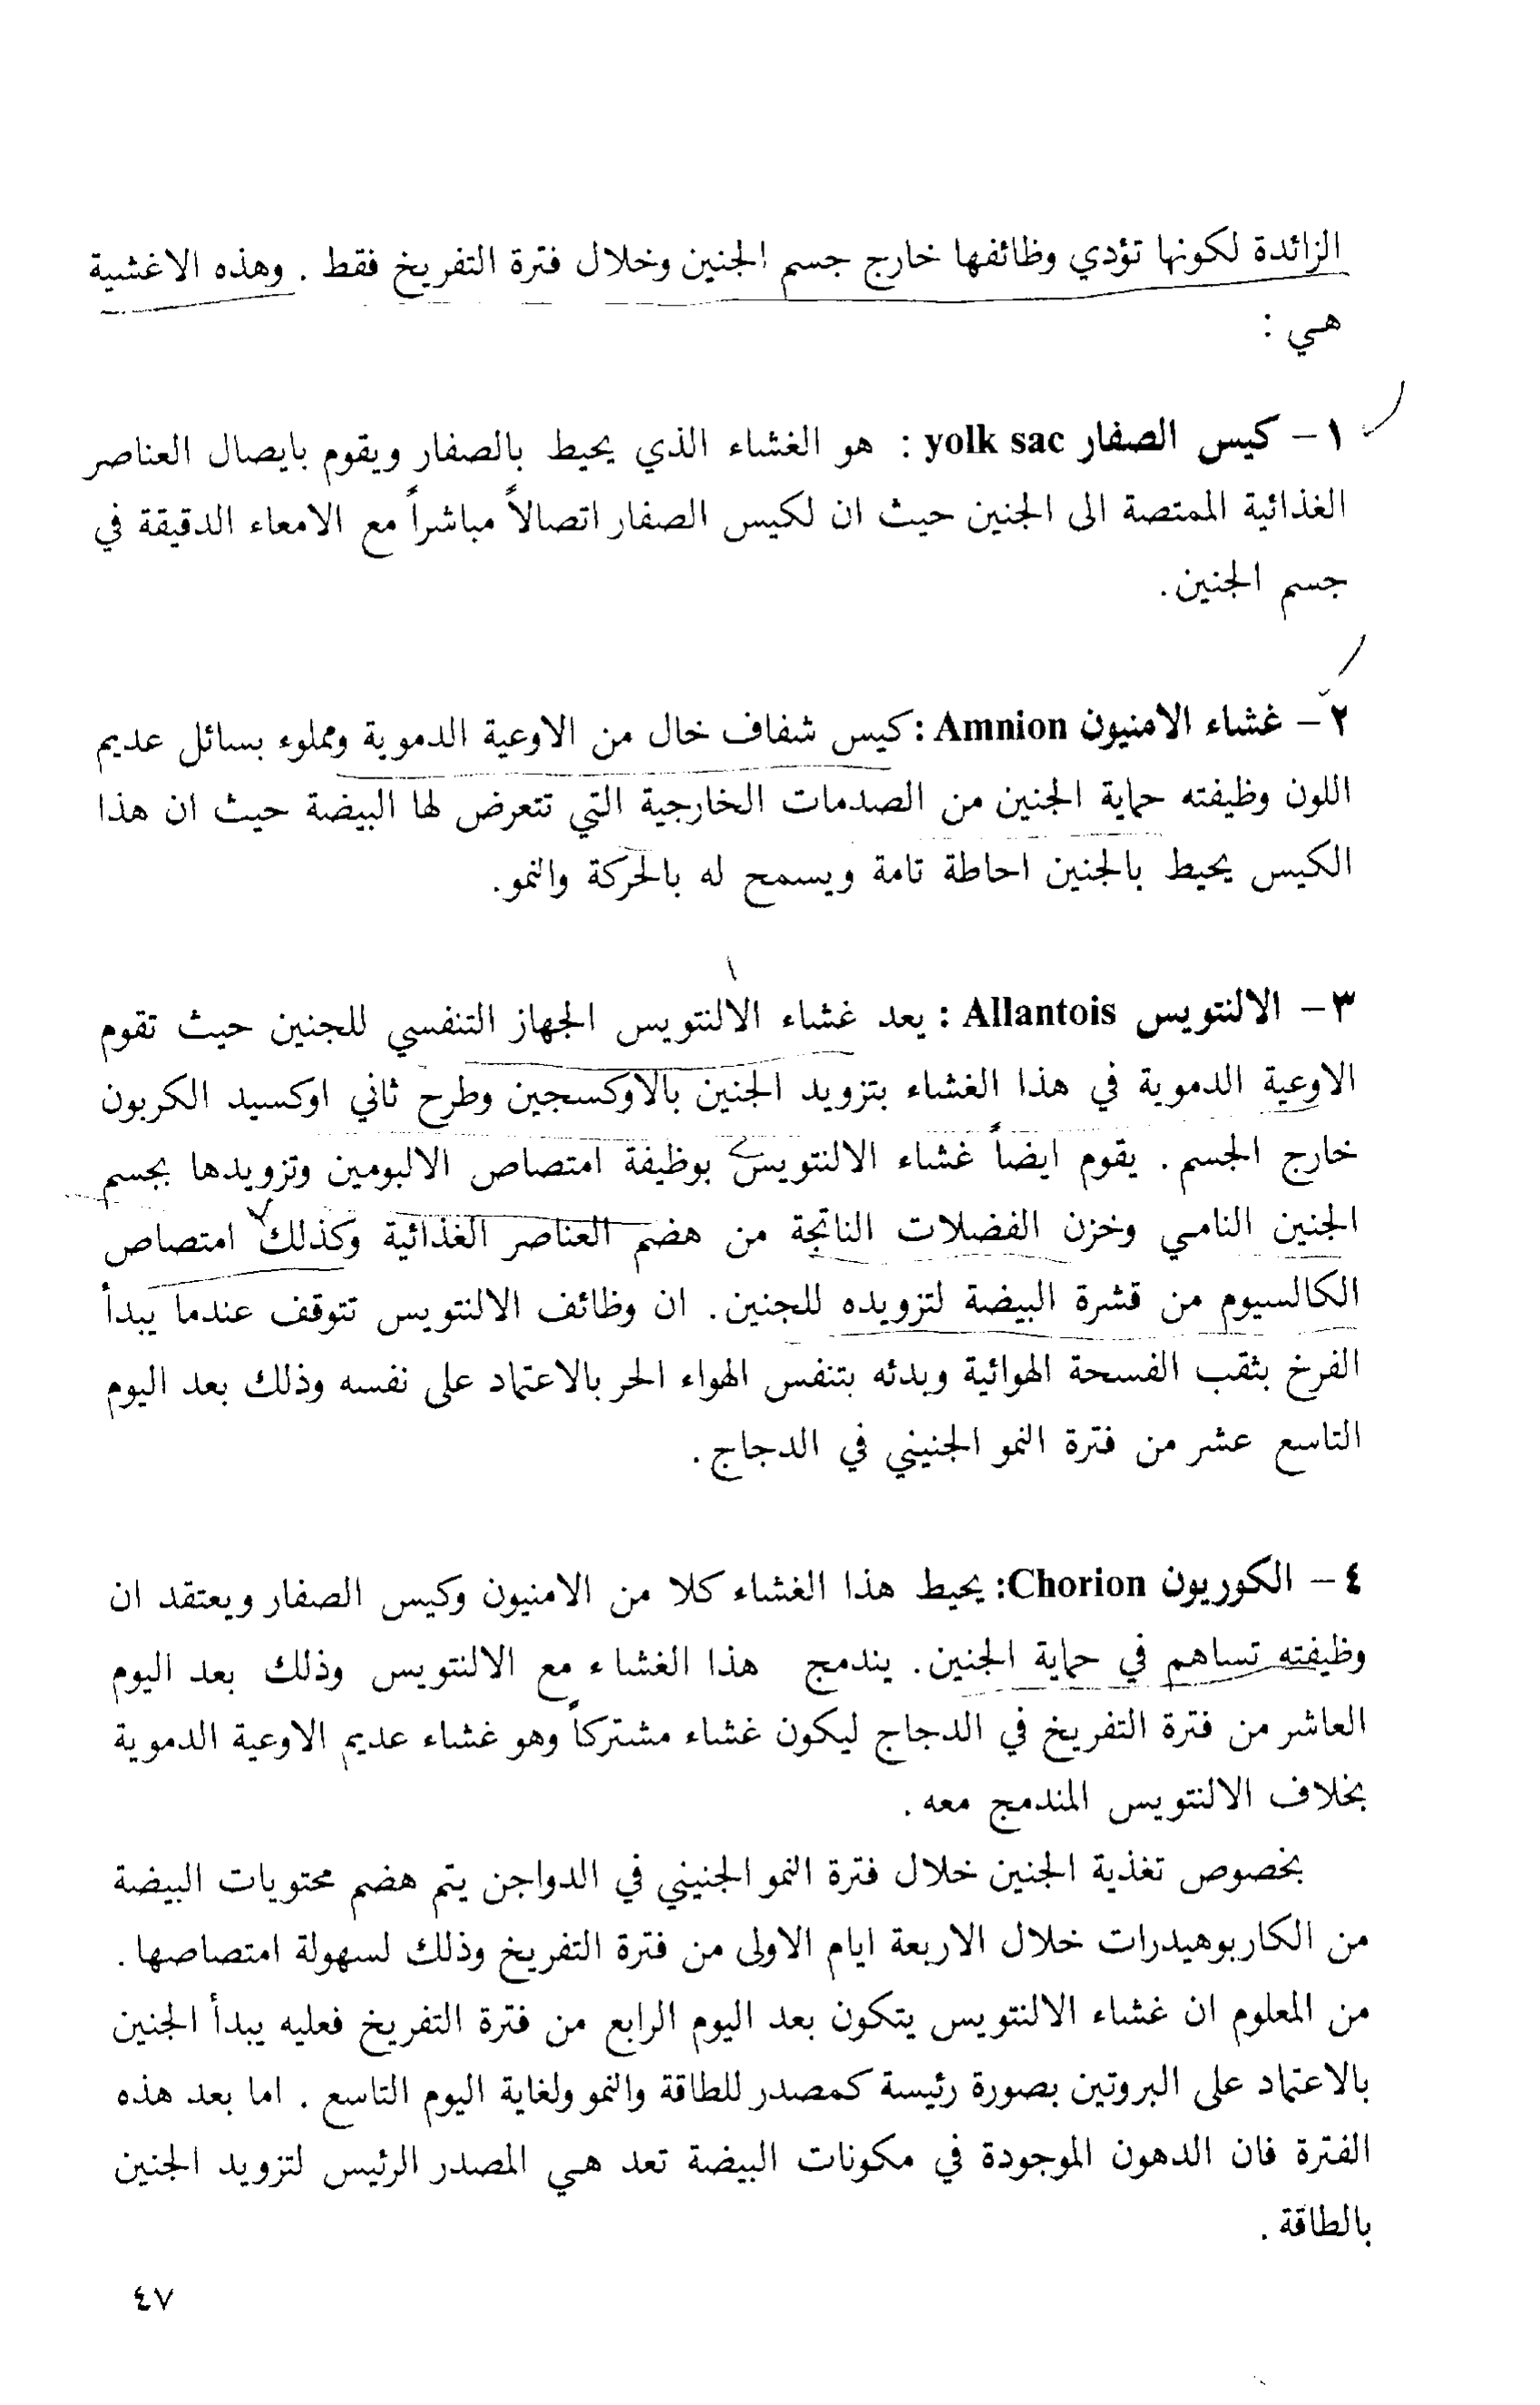 الزائدة لكونها تؤدي وظائفها خارج جسم الجنين وخلال فترة التفريخ فقط . وهذه الاغشية
هي :
١ - كيس الصفار yolk sac : هو الغشاء الذي يحيط بالصفار ويقوم بايصال العناصر
الغذائية الممتصة الى الجنين حيث ان لكيس الصفار اتصالاً مباشراً مع الامعاء الدقيقة في
جسم الجنين.
٢ - غشاء الامنيون Amnion : كيس شفاف خال من الاوعية الدموية ومملوء بسائل عديم
اللون وظيفته حماية الجنين من الصدمات الخارجية التي تتعرض لها البيضة حيث ان هذا
الكيس يحيط بالجنين احاطة تامة ويسمح له بالحركة والنمو.
٣ - الالنتويس Allantois : يعد غشاء الالنتويس الجهاز التنفسي للجنين حيث تقوم
الاوعية الدموية في هذا الغشاء بتزويد الجنين بالاوكسجين وطرح ثاني اوكسيد الكربون
خارج الجسم . يقوم ايضاً غشاء الالنتويس بوظيفة امتصاص الالبومين وتزويدها بجسم
الجنين النامي وخزن الفضلات الناتجة من هضم العناصر الغذائية وكذلك امتصاص
الكالسيوم من قشرة البيضة لتزويده للجنين . ان وظائف الالنتويس تتوقف عندما يبدأ
الفرخ بثقب الفسحة الهوائية وبدئه بتنفس الهواء الحر بالاعتماد على نفسه وذلك بعد اليوم
التاسع عشر من فترة النمو الجنيني في الدجاج .
٤ - الكوريون Chorion: يحيط هذا الغشاء كلا من الامنيون وكيس الصفار ويعتقد ان
وظيفته تساهم في حماية الجنين . يندمج هذا الغشاء مع الالنتويس وذلك بعد اليوم
العاشر من فترة التفريخ في الدجاج ليكون غشاء مشتركاً وهو غشاء عديم الاوعية الدموية
بخلاف الالنتويس المندمج معه .
بخصوص تغذية الجنين خلال فترة النمو الجنيني في الدواجن يتم هضم محتويات البيضة
من الكاربوهيدرات خلال الاربعة ايام الاولى من فترة التفريخ وذلك لسهولة امتصاصها .
من المعلوم ان غشاء الالنتويس يتكون بعد اليوم الرابع من فترة التفريخ فعليه يبدأ الجنين
بالاعتماد على البروتين بصورة رئيسة كمصدر للطاقة والنمو ولغاية اليوم التاسع . اما بعد هذه
الفترة فان الدهون الموجودة في مكونات البيضة تعد هي المصدر الرئيس لتزويد الجنين
بالطاقة .
٤٧